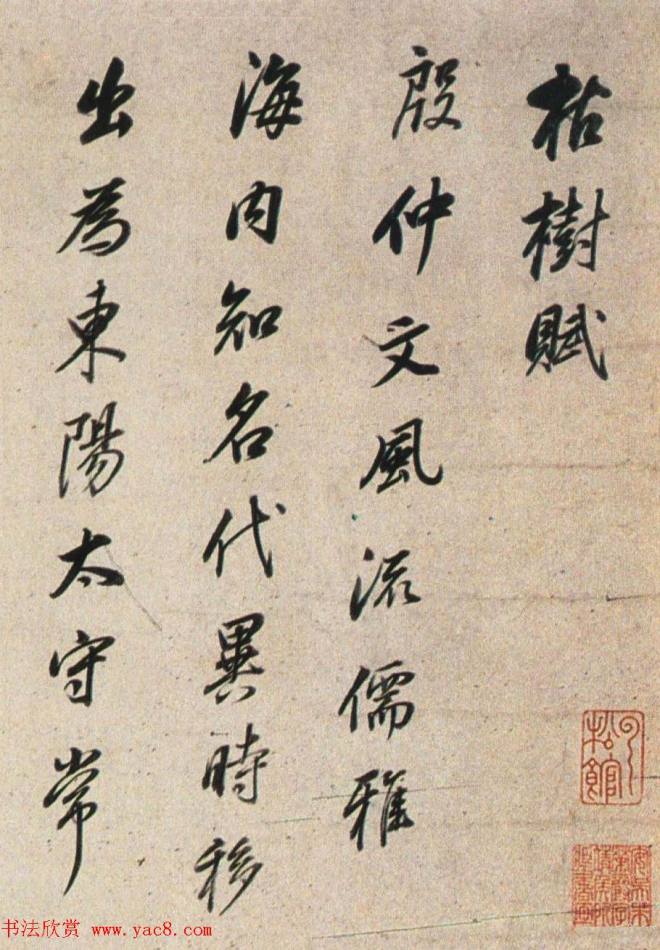 枯樹賦
殷仲文風流儒雅
海内知名代異時移
出為東陽太守常
书法欣赏 www.yac8.com